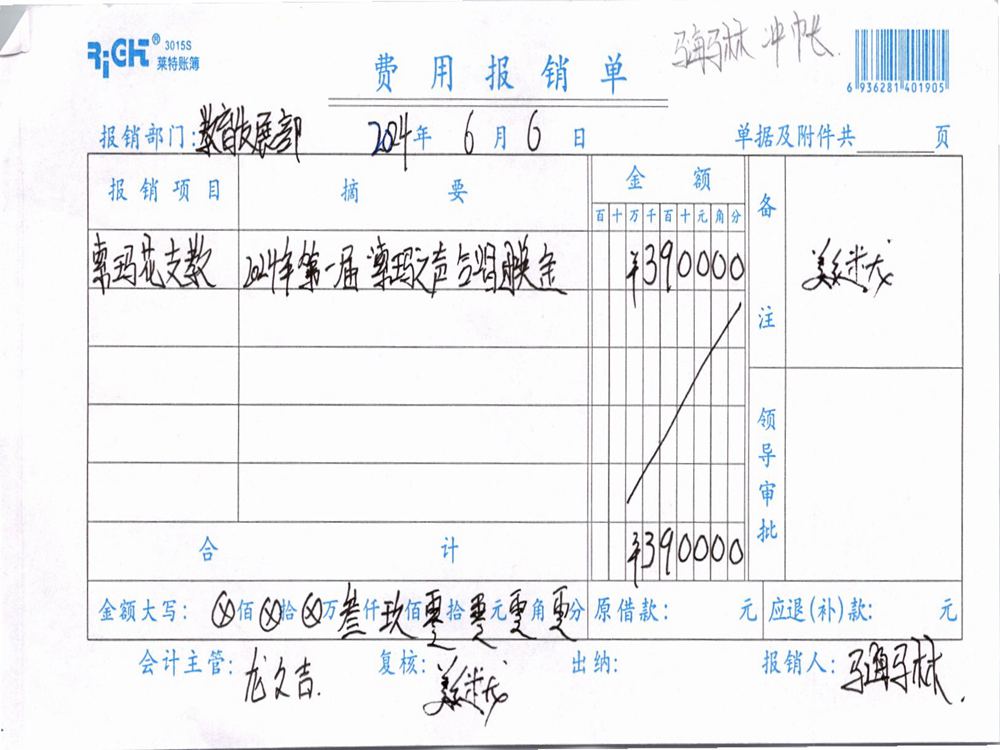 RiGHT® 3015S
莱特账簿
费用报销单
马海马林 冲帐
6 936281 401905
报销部门:教育发展部 2024年 6月 6日 单据及附件共 页
报销项目 摘要 金额 备注
百十万千百十元角分
索玛花支教 2024年第一届索玛之声合唱奖金 ¥390000
领导审批
合计 ¥390000
金额大写: ⊗佰⊗拾⊗万叁仟玖佰零拾零元零角零分 原借款: 元 应退(补)款: 元
会计主管: 龙文吉. 复核: 出纳: 报销人: 马海马林.